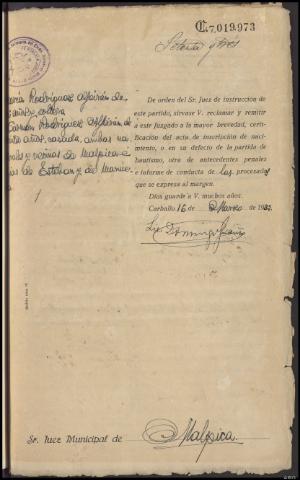 C.7,019,973
Setenta y tres
María Rodríguez Alfeirán de
soltera
Carmen Rodríguez Alfeirán de
años, casada, ambas na-
y vecinas de Malpica
jas de Esteban y de Manuela
De orden del Sr. Juez de instrucción de
este partido, sírvase V. reclamar y remitir
a este Juzgado a la mayor brevedad, certi-
ficación del acta de inscripción de naci-
miento, o en su defecto de la partida de
bautismo, otra de antecedentes penales
e informe de conducta de las procesadas
que se expresa al margen.
Dios guarde a V. muchos años.
Carballo 16 de Marzo de 193
Sr. Juez Municipal de Malpica.